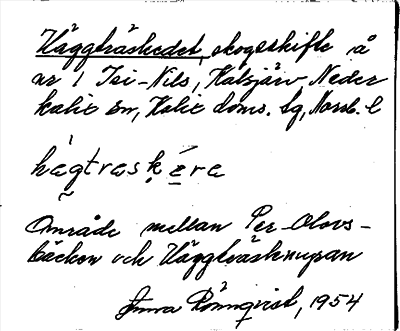 Häggträskedet, skogsskifte å
nr 1 Isi-Nils, Kälsjärv Neder
kalix sn, Kalix doms. lg, Norrb. l
hägträskére
Område mellan Per-Olovs-
bäcken och Häggträsknupan
Rönnqvist, 1954